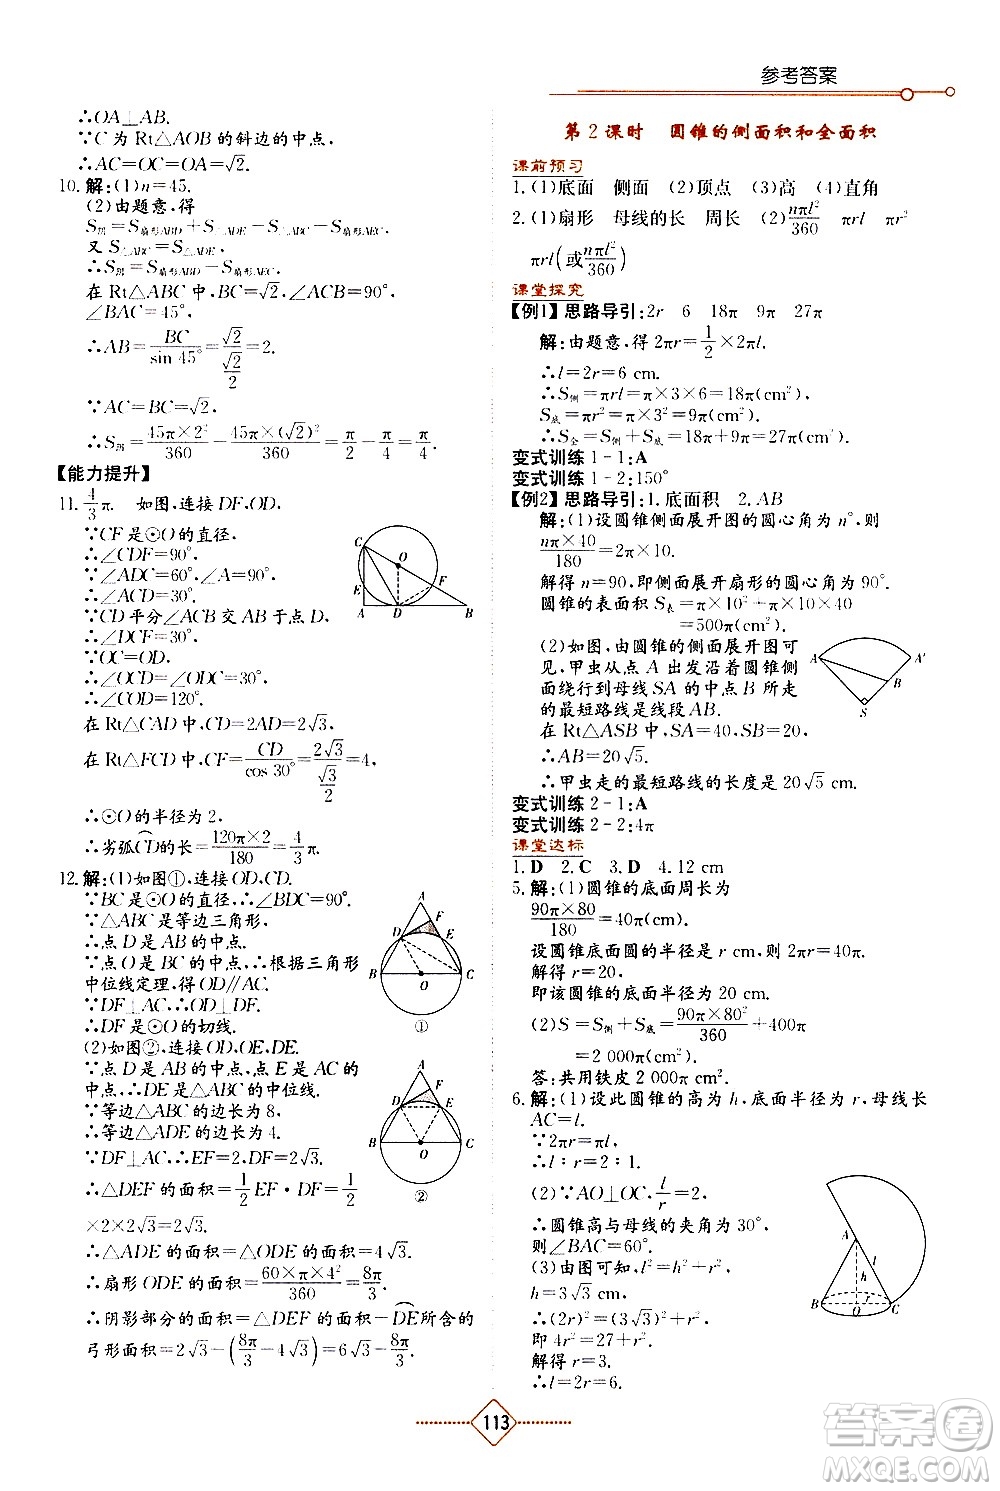 参考答案
∴OA⊥AB.
∵C 为 Rt△AOB 的斜边的中点,
∴AC=OC=OA=√2.
10. 解:(1)n=45.
(2)由题意,得
S阴=S扇形ABD+S△ADE-S△ABC-S扇形AEC.
又 S△ABC=S△ADE,
∴S阴=S扇形ABD-S扇形AEC.
在 Rt△ABC 中,BC=√2,∠ABC=90°,
∠BAC=45°,
∴AB=BC/sin 45°=√2/(√2/2)=2.
∵AC=BC=√2,
∴S阴=45π×2²/360-45π×(√2)²/360=π/2-π/4=π/4.
【能力提升】
11. 4/3π. 如图,连接 DF,OD,
∵CF 是⊙O 的直径,
∴∠CDF=90°,
∵∠ADC=60°,∠A=90°,
∴∠ACD=30°.
∵CD 平分∠ACB 交 AB 于点 D,
∴∠DCF=30°.
∵OC=OD,
∴∠OCD=∠ODC=30°,
∴∠COD=120°.
在 Rt△CAD 中,CD=2AD=2√3,
在 Rt△FCD 中,CF=CD/cos 30°=2√3/(√3/2)=4,
∴⊙O 的半径为 2.
∴劣弧CD的长=120π×2/180=4/3π.
C O F E A D B
12. 解:(1)如图①,连接 OD,CD.
∵BC 是⊙O 的直径,∴∠BDC=90°.
∵△ABC 是等边三角形,
∴点 D 是 AB 的中点.
∵点 O 是 BC 的中点,∴根据三角形
中位线定理,得 OD∥AC.
∵DF⊥AC,∴OD⊥DF.
∴DF 是⊙O 的切线.
A F D E B O C
①
(2)如图②,连接 OD,OE,DE.
∵点 D 是 AB 的中点,点 E 是 AC 的
中点,∴DE 是△ABC 的中位线.
∵等边△ABC 的边长为 8,
∴等边△ADE 的边长为 4.
∵DF⊥AC,∴EF=2,DF=2√3.
∴△DEF 的面积=1/2 EF·DF=1/2
×2×2√3=2√3.
A F D E B O C
②
∴△ADE 的面积=△ODE 的面积=4√3.
∴扇形 ODE 的面积=60×π×4²/360=8π/3.
∴阴影部分的面积=△DEF 的面积-DE的
弓形面积=2√3-(8π/3-4√3)=6√3-8π/3.
第 2 课时 圆锥的侧面积和全面积
课前预习
1. (1)底面 侧面 (2)顶点 (3)高 (4)直角
2. (1)扇形 母线的长 周长 (2)nπl²/360 πrl πr²
πrl(或nπl²/360)
课堂探究
【例1】思路导引:2r 6 18π 9π 27π
解:由题意,得 2πr=1/2×2πl.
∴l=2r=6 cm.
∴S侧=πrl=π×3×6=18π(cm²)
S底=πr²=π×3²=9π(cm²).
∴S全=S侧+S底=18π+9π=27π(cm²).
变式训练 1-1:A
变式训练 1-2:150°
【例2】思路导引:1. 底面积 2. AB
解:(1)设圆锥侧面展开图的圆心角为 n°,则
nπ×40/180=2π×10.
解得 n=90,即侧面展开扇形的圆心角为 90°.
圆锥的表面积 S表=π×10²+π×10×40
=500π(cm²).
(2)如图,由圆锥的侧面展开图可
见,甲虫从点 A 出发沿着圆锥侧
面绕行到母线 SA 的中点 B 所走
的最短路线是线段 AB.
在 Rt△ASB 中,SA=40,SB=20.
∴AB=20√5.
∴甲虫走的最短路线的长度是 20√5 cm.
A A′ B S
变式训练 2-1:A
变式训练 2-2:4π
课堂达标
1. D 2. C 3. D 4. 12 cm
5. 解:(1)圆锥的底面周长为
90π×80/180=40π(cm).
设圆锥底面圆的半径是 r cm,则 2πr=40π.
解得 r=20.
即该圆锥的底面半径为 20 cm.
(2)S=S侧+S底=90π×80²/360+400π
=2 000π(cm²).
答:共用铁皮 2 000π cm².
6. 解:(1)设此圆锥的高为 h,底面半径为 r,母线长
AC=l.
∵2πr=πl,
∴l∶r=2∶1.
(2)∵AO⊥OC,l/r=2,
∴圆锥高与母线的夹角为 30°,
则∠BAC=60°.
(3)由图可知,l²=h²+r²,
h=3√3 cm,
∴(2r)²=(3√3)²+r²,
即 4r²=27+r².
解得 r=3.
∴l=2r=6.
A l h r B O C
113
答案圈
MXQE.COM